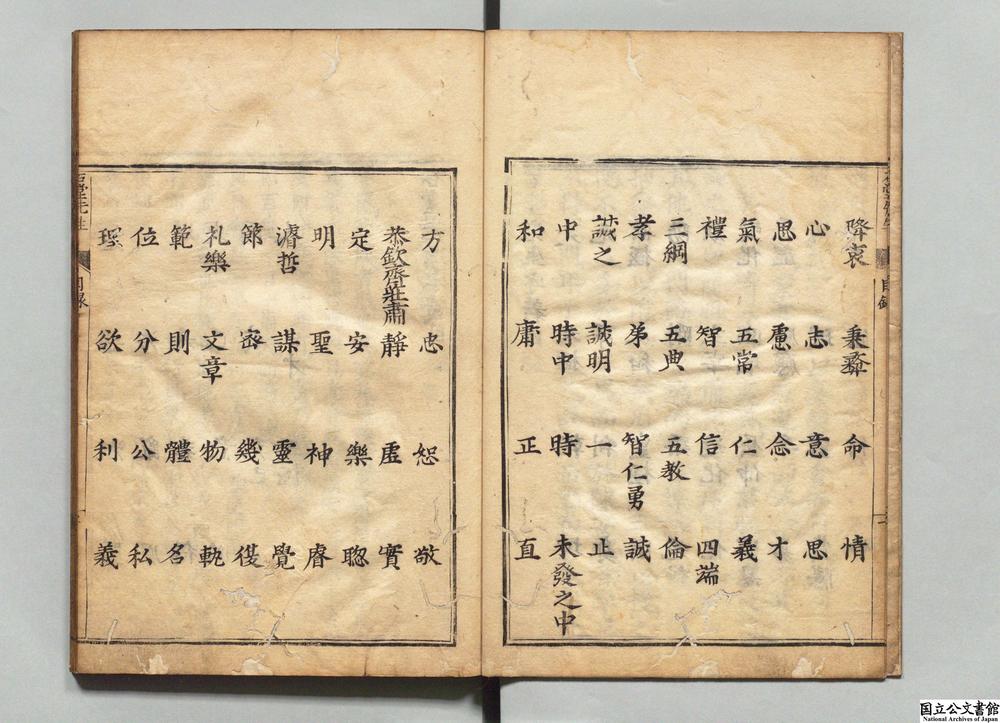 降衷 秉彝 命 情
心 志 意 思
思 慮 念 才
氣 五常 仁 義
禮 智 信 四端
三綱 五典 五教 倫
孝 弟 智仁勇 誠
誠之 誠明 一 止
中 時中 時 未發之中
和 庸 正 直
方 忠 恕 敬
恭欽齊莊肅 靜 虛 實
定 安 樂 聰
明 聖 神 睿
濬哲 謀 靈 覺
節 密 幾 復
礼樂 文章 物 軌
範 則 體 名
位 分 公 私
理 欲 利 義
目錄
目錄
国立公文書館
National Archives of Japan